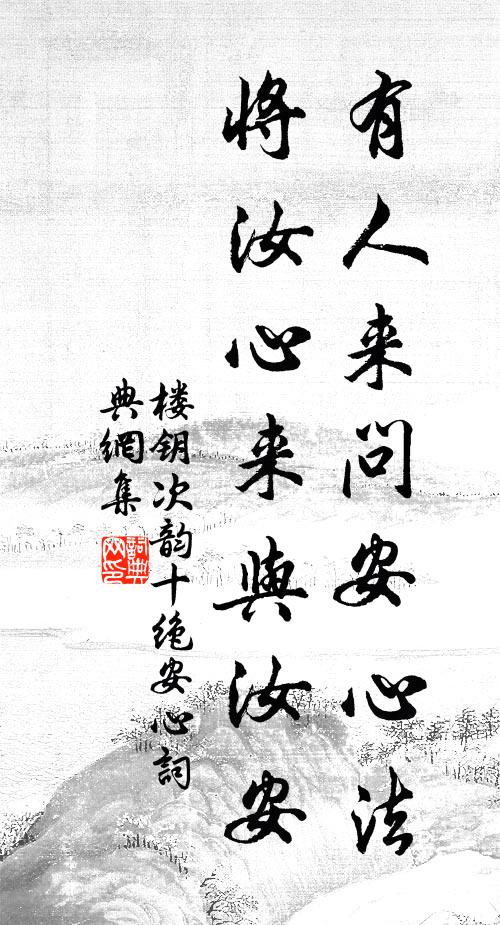 有人来问安心法
将汝心来与汝安
楼钥次韵十绝安心词
典網集
詞典網印